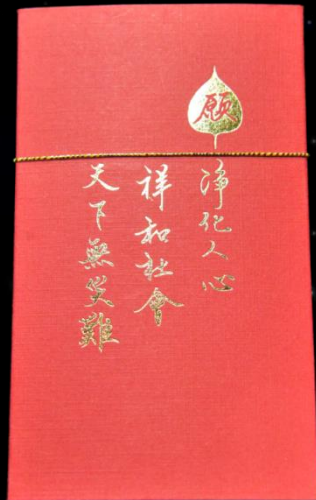 願
淨化人心
祥和社會
天下無災難